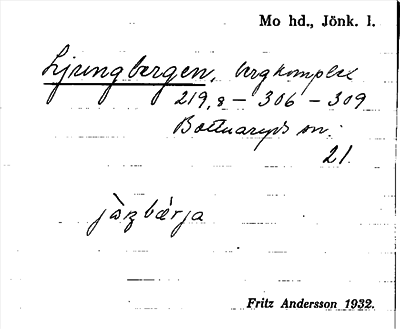 Mo hd., Jönk. l.
Ljungbergen, bergkomplex
219,8 – 306 – 309
Bottnaryds sn.
21.
Fritz Andersson 1932.